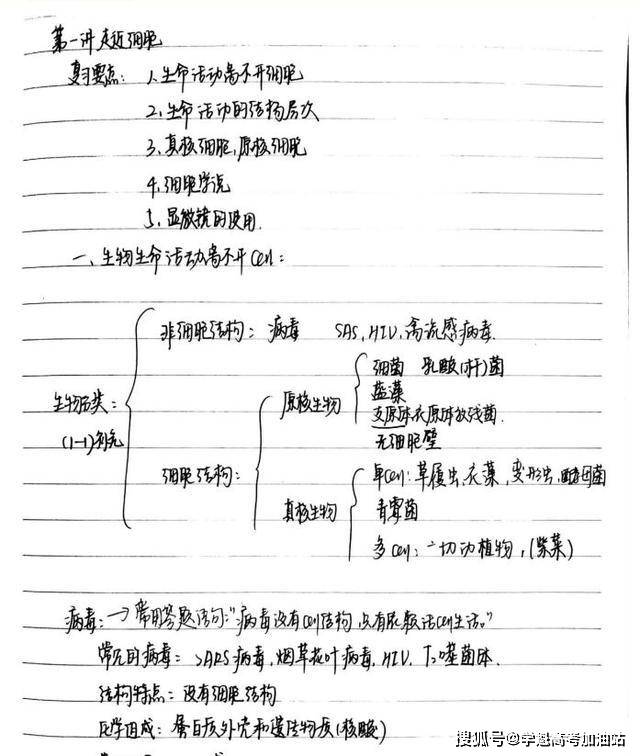 第一讲 走近细胞
复习要点: 1.生命活动离不开细胞
2.生命活动的结构层次
3.真核细胞,原核细胞
4.细胞学说
5.显微镜的使用.
一、生物生命活动离不开cell:
非细胞结构: 病毒 SAS,HIV,禽流感病毒.
细菌 乳酸(杆)菌
原核生物
蓝藻
生物分类:
支原体衣原体放线菌.
(1-1)
无细胞壁
细胞结构:
单cell:草履虫,衣藻,变形虫,酵母菌
真核生物
青霉菌
多cell:一切动植物,(紫菜)
病毒:→常用答题语句:"病毒没有cell结构,只有依赖活cell生活。"
常见的病毒: SARS病毒,烟草花叶病毒.HIV.T₂噬菌体.
结构特点:没有细胞结构
化学组成:蛋白质外壳和遗传物质(核酸)
搜狐号@学魁高考加油站